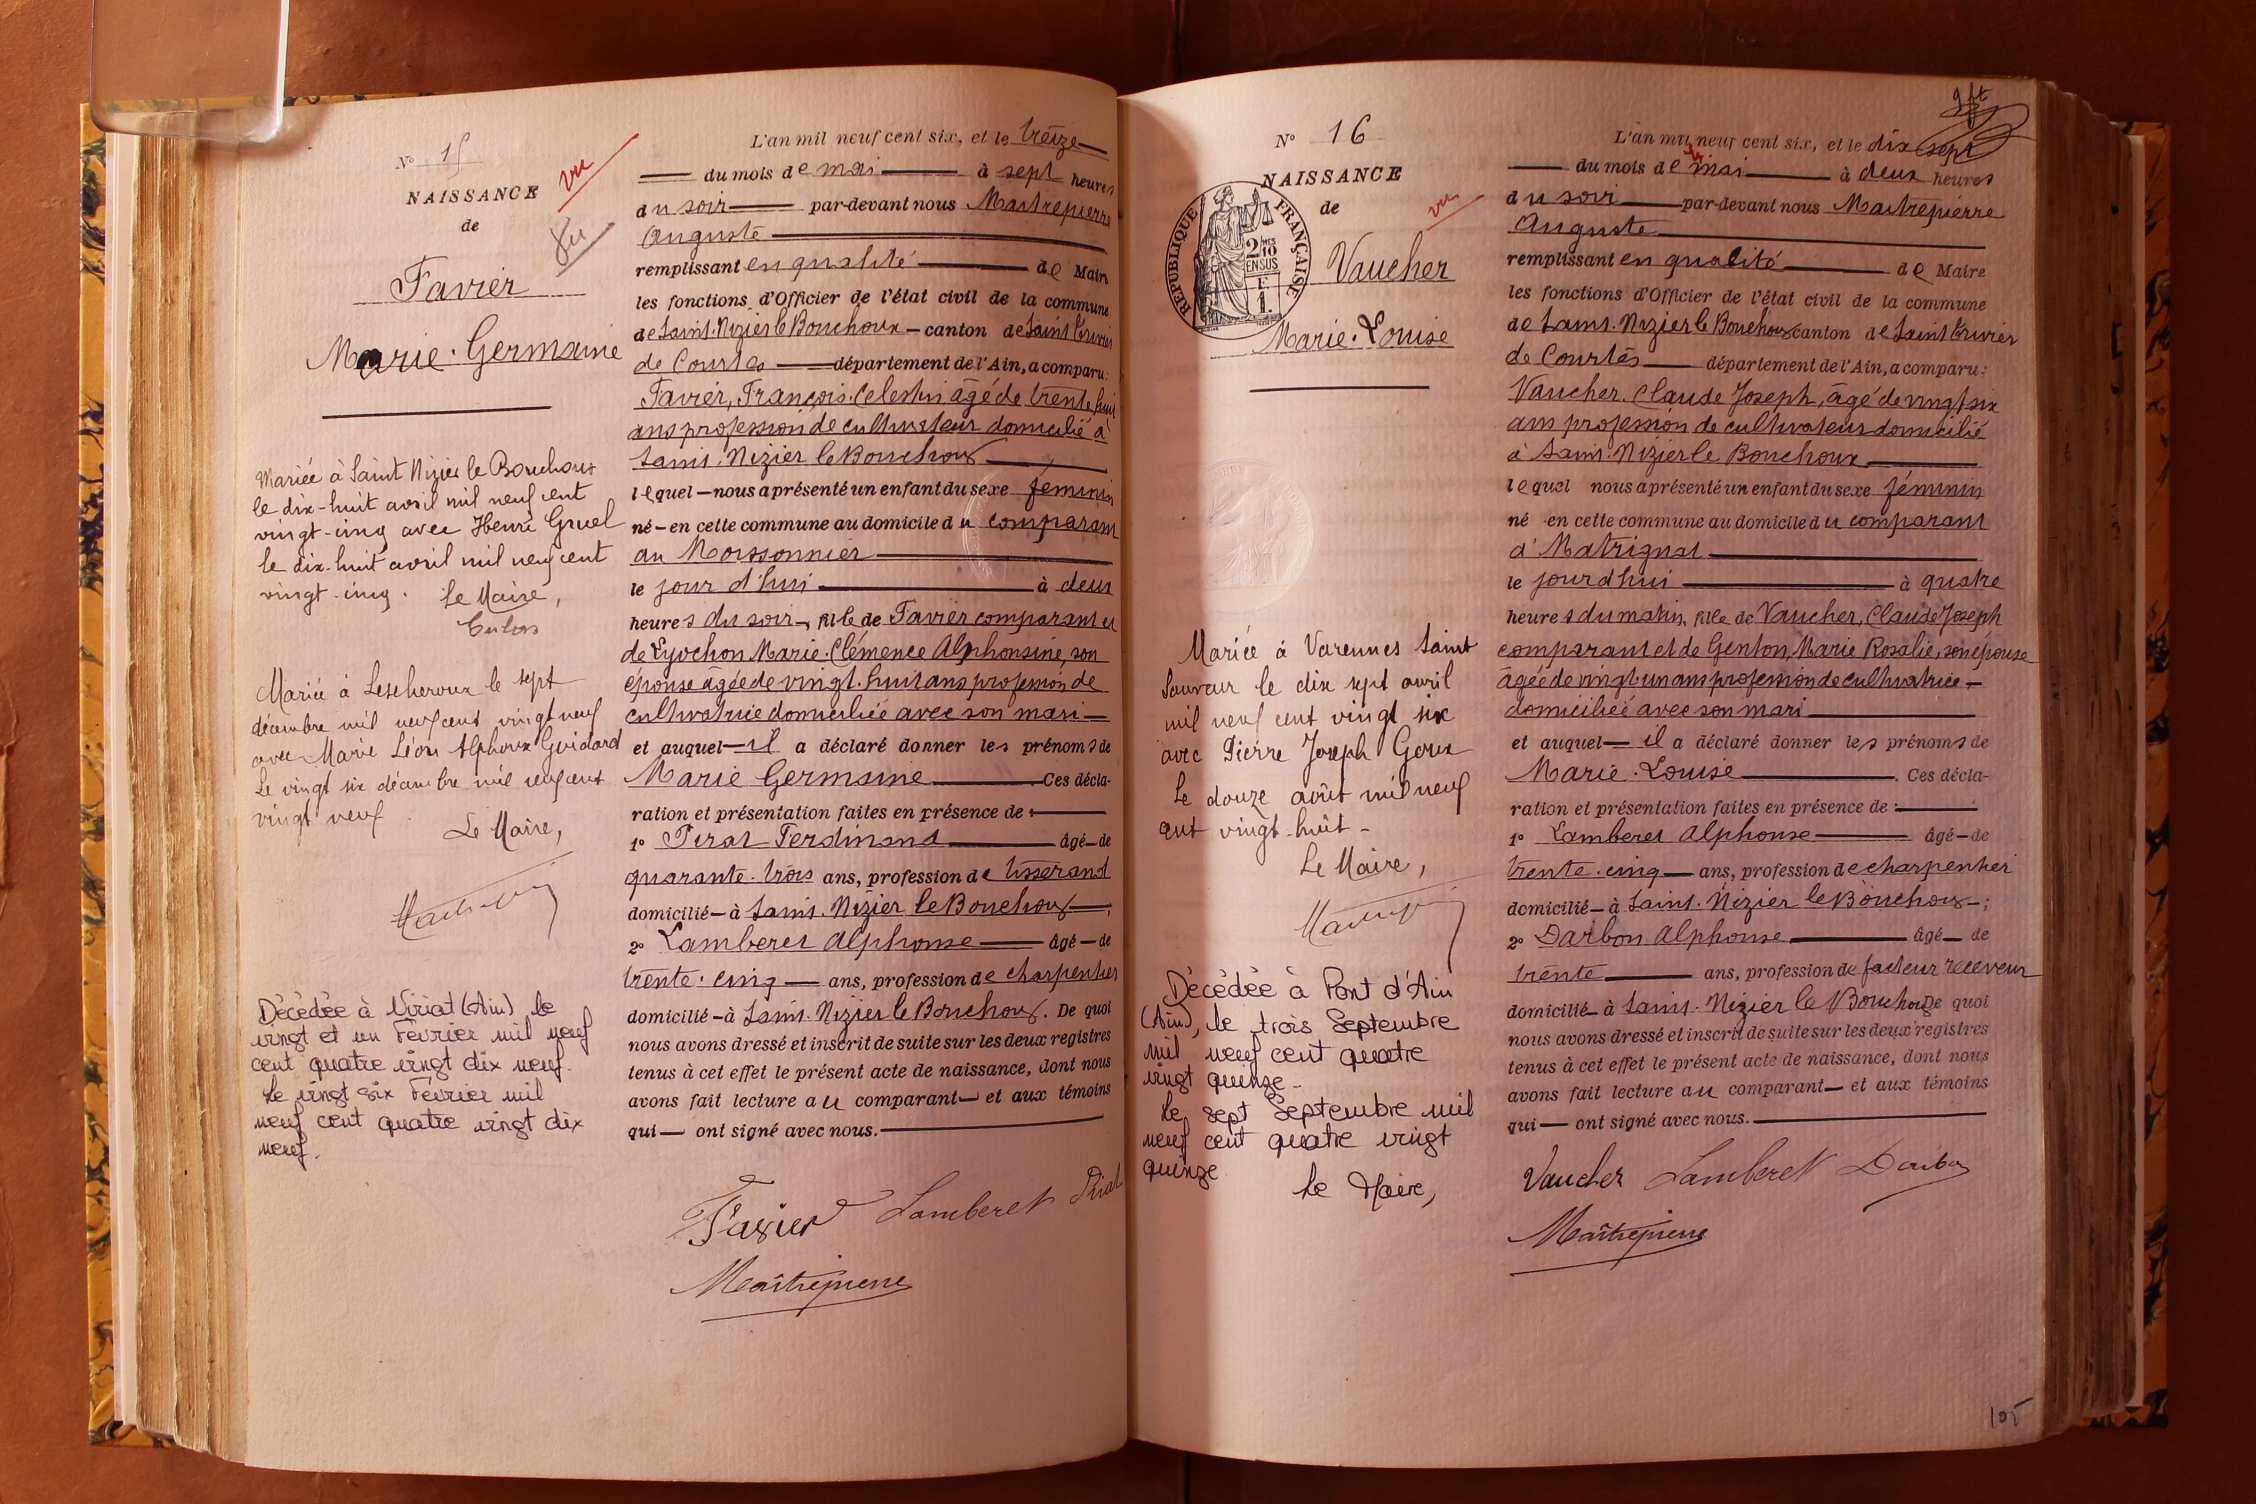 N° 15
NAISSANCE
de
Favier
Marie. Germaine
vu
Mariée à Saint Nizier le Bouchoux
le dix-huit avril mil neuf cent
vingt-cinq avec Henri Gruel
le dix-huit avril mil neuf cent
vingt-cinq. Le Maire,
Mariée à Lescheroux le sept
décembre mil neuf cent vingt neuf
avec Marie Léon Alphonse Guidard
Le vingt six décembre mil neuf cent
vingt neuf. Le Maire,
Décédée à Viriat (Ain) le
vingt et un Février mil neuf
cent quatre vingt dix neuf.
Le vingt six Février mil
neuf cent quatre vingt dix
neuf.
L'an mil neuf cent six, et le treize
du mois de mai à sept heures
du soir par-devant nous Maitrepierre
Auguste
remplissant en qualité de Maire
les fonctions d'Officier de l'état civil de la commune
de Saint. Nizier le Bouchoux canton de Saint Trivier
de Courtes département de l'Ain, a comparu:
Favier, François. Celestin âgé de trente huit
ans profession de cultivateur domicilié à
Saint. Nizier le Bouchoux
lequel nous a présenté un enfant du sexe féminin
né en cette commune au domicile du comparant
au Moissonnier
le jour d'hui à deux
heures du soir, fille de Favier comparant et
de Lyochon Marie. Clémence Alphonsine, son
épouse âgée de vingt. huit ans profession de
cultivatrice domiciliée avec son mari
et auquel il a déclaré donner les prénoms de
Marie Germaine Ces décla-
ration et présentation faites en présence de :
1° Pirat Ferdinand âgé de
quarante. trois ans, profession de tisserand
domicilié à Saint. Nizier le Bouchoux ;
2° Lamberet Alphonse âgé de
trente. cinq ans, profession de charpentier
domicilié à Saint. Nizier le Bouchoux. De quoi
nous avons dressé et inscrit de suite sur les deux registres
tenus à cet effet le présent acte de naissance, dont nous
avons fait lecture au comparant et aux témoins
qui ont signé avec nous.
Favier Lamberet Pirat
Maîtrepierre
N° 16
NAISSANCE
de
vu
REPUBLIQUE FRANÇAISE
2/10MES
EN SUS
1.
Vaucher
Marie. Louise
Mariée à Varennes Saint
Sauveur le dix sept avril
mil neuf cent vingt six
avec Pierre Joseph Goux
Le douze août mil neuf
cent vingt-huit -
Le Maire,
Décédée à Pont d'Ain
(Ain), le trois Septembre
mil neuf cent quatre
vingt quinze -
Le sept Septembre mil
neuf cent quatre vingt
quinze
Le Maire,
L'an mil neuf cent six, et le dix sept
du mois de mai à deux heures
du soir par-devant nous Maitrepierre
Auguste
remplissant en qualité de Maire
les fonctions d'Officier de l'état civil de la commune
de Saint. Nizier le Bouchoux canton de Saint Trivier
de Courtes département de l'Ain, a comparu:
Vaucher. Claude Joseph, âgé de vingt six
ans profession de cultivateur domicilié
à Saint. Nizier le Bouchoux
lequel nous a présenté un enfant du sexe féminin
né en cette commune au domicile du comparant
à Matrignat
le jour d'hui à quatre
heures du matin, fille de Vaucher, Claude Joseph
comparant et de Genton, Marie Rosalie, son épouse
âgée de vingt-un ans profession de cultivatrice
domiciliée avec son mari
et auquel il a déclaré donner les prénoms de
Marie. Louise. Ces décla-
ration et présentation faites en présence de :
1° Lamberet Alphonse âgé de
trente. cinq ans, profession de charpentier
domicilié à Saint. Nizier le Bouchoux ;
2° Darbon Alphonse âgé de
trente ans, profession de facteur receveur
domicilié à Saint. Nizier le Bouchoux De quoi
nous avons dressé et inscrit de suite sur les deux registres
tenus à cet effet le présent acte de naissance, dont nous
avons fait lecture au comparant et aux témoins
qui ont signé avec nous.
Vaucher Lamberet Darbon
Maîtrepierre
105